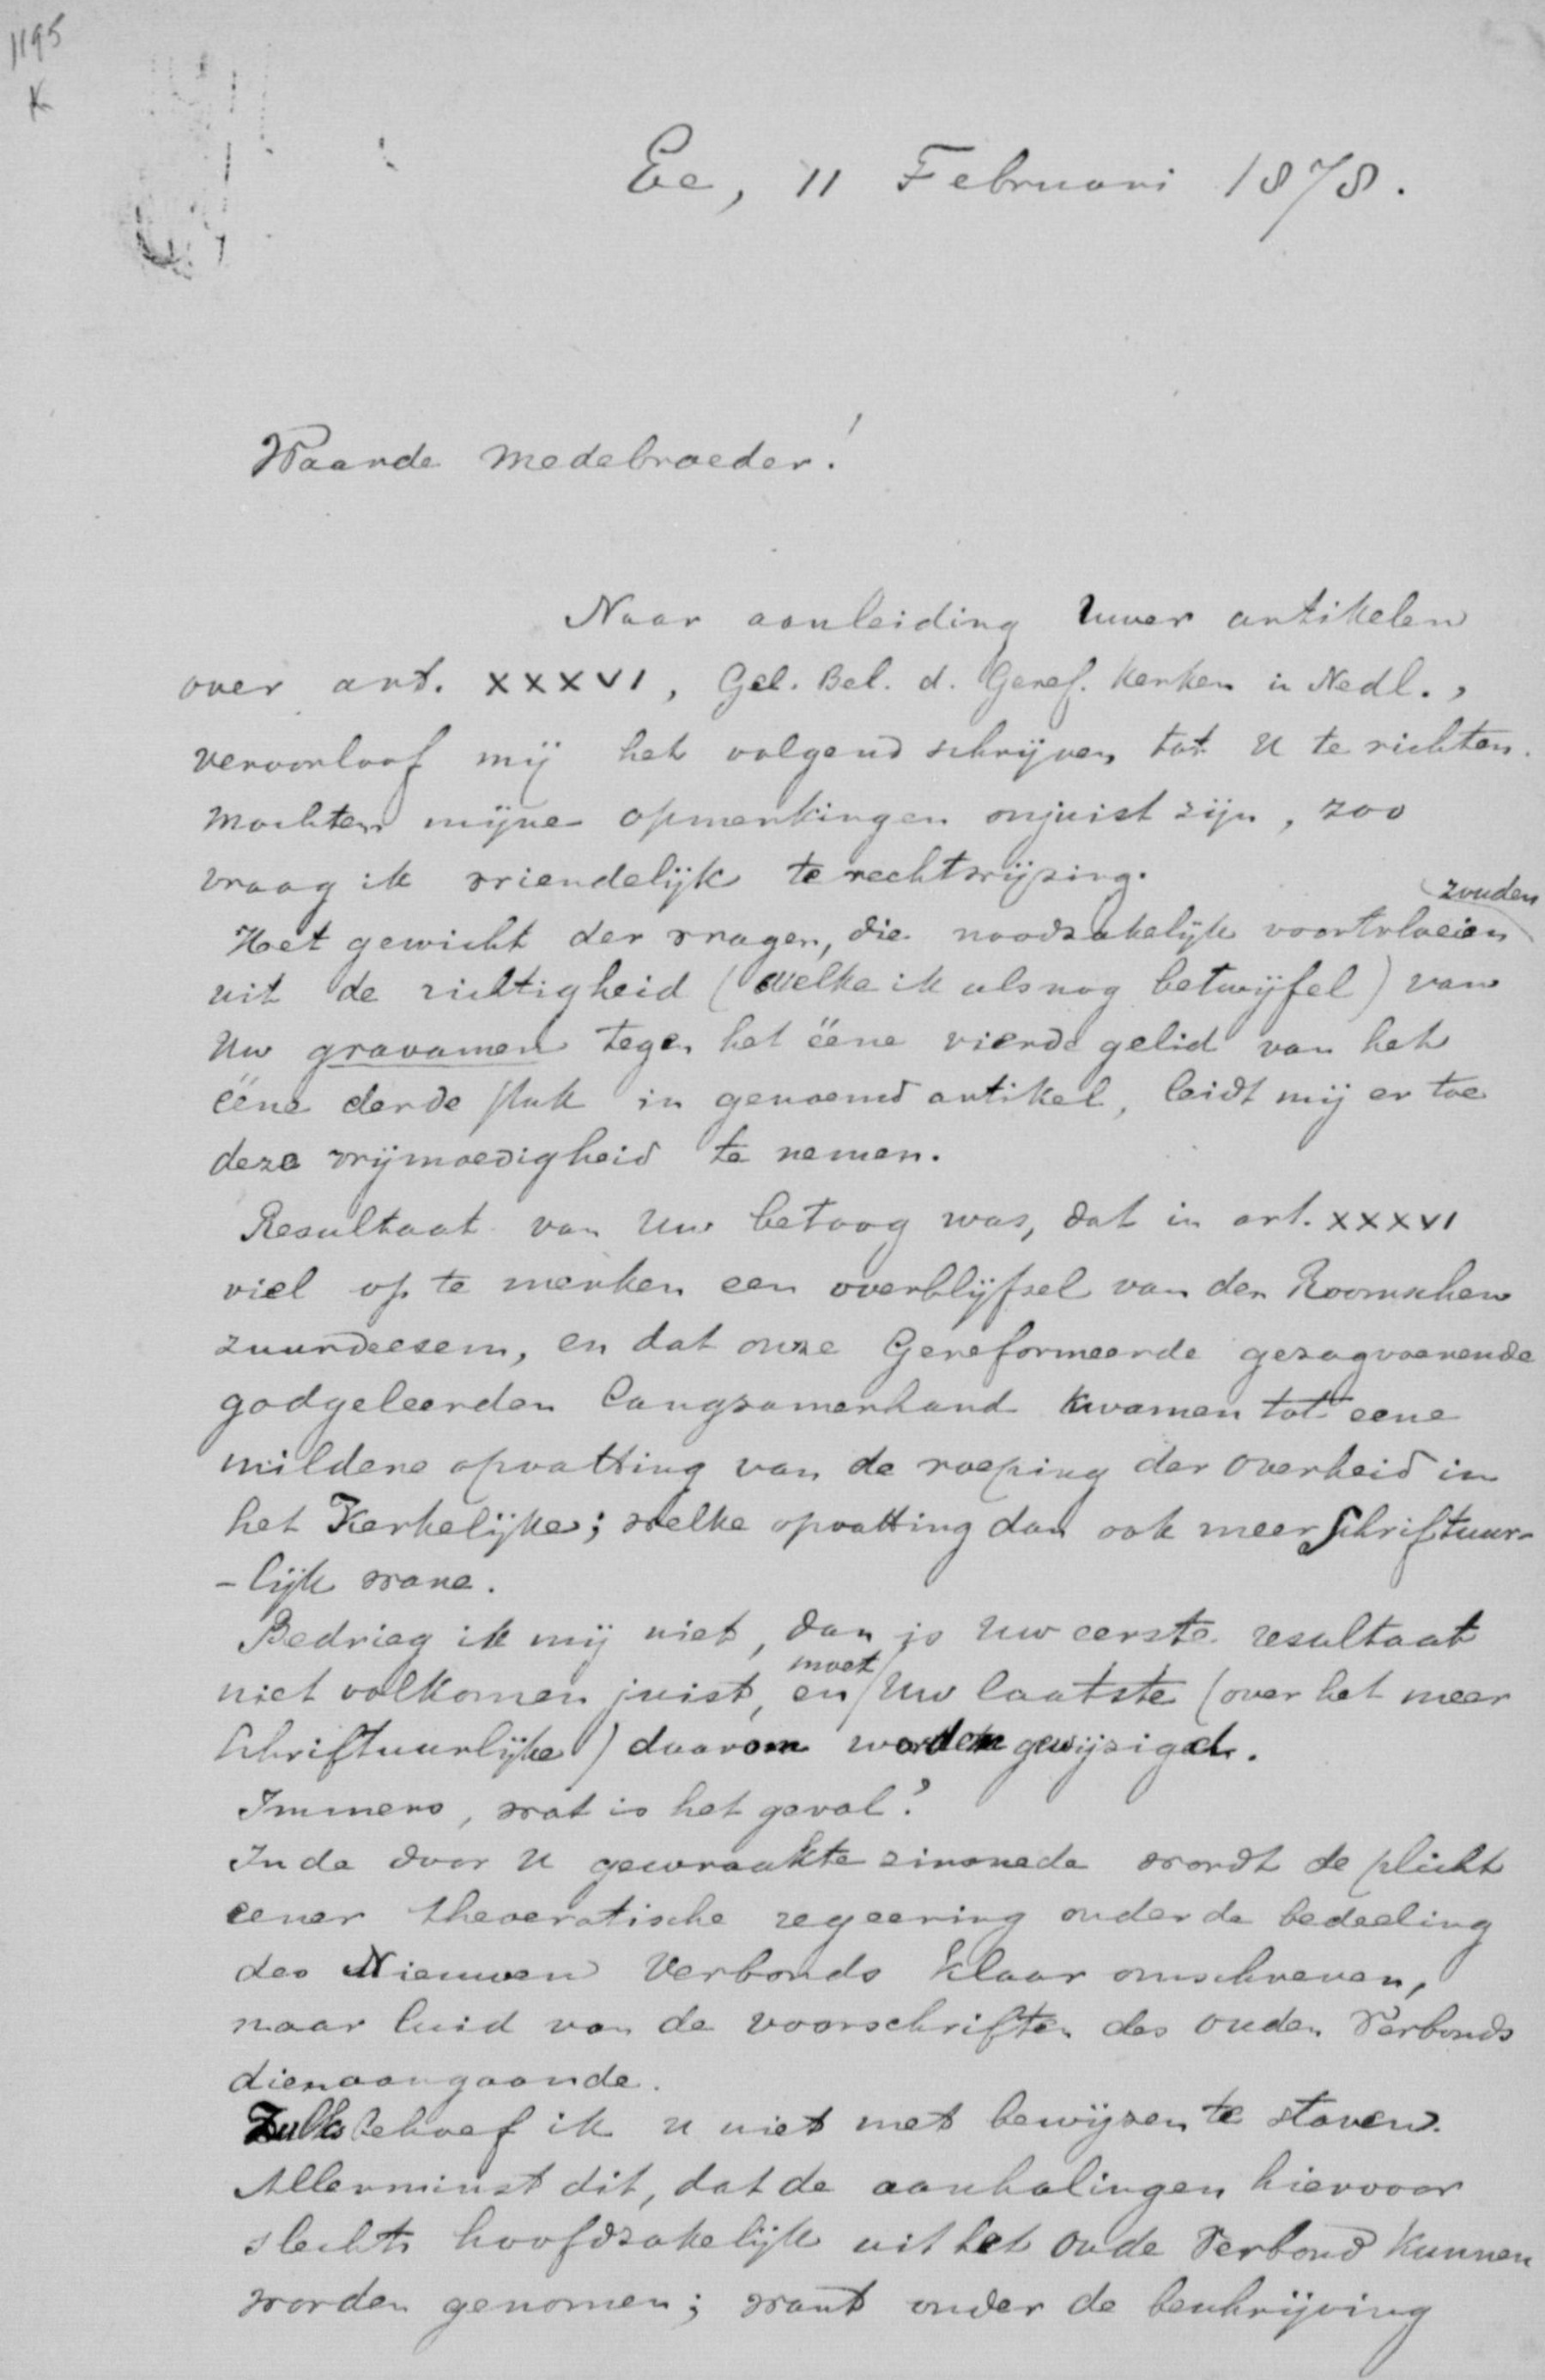 1195
K
Ee, 11 Februari 1878.
Waarde Medebroeder!
Naar aanleiding Uwer artikelen
over art. XXXVI, Gel. Bel. d. Geref. Kerken in Nedl.,
veroorloof mij het volgend schrijven tot U te richten.
Mochten mijne opmerkingen onjuist zijn, zoo
vraag ik vriendelijk terechtwijzing.
zouden
Het gewicht der vragen, die noodzakelijk voortvloeien
uit de richtigheid (welke ik alsnog betwijfel) van
Uw gravamen tegen het ééne vierde gelid van het
ééne derde stuk in genoemd artikel, leidt mij er toe
deze vrijmoedigheid te nemen.
Resultaat van Uw betoog was, dat in art. XXXVI
viel op te merken een overblijfsel van den Roomschen
zuurdeesem, en dat onze Gereformeerde gezagvoerende
godgeleerden langzamerhand kwamen tot eene
mildere opvatting van de roeping der Overheid in
het Kerkelijke; welke opvatting dan ook meer Schriftuur-
-lijk ware.
Bedrieg ik mij niet, dan is Uw eerste resultaat
moet
niet volkomen juist, en Uw laatste (over het meer
Schriftuurlijke) daarom worden gewijzigd.
Immers, wat is het geval?
In de door U gewraakte zinsnede wordt de plicht
eener theocratische regeering onder de bedeeling
des Nieuwen Verbonds klaar omschreven,
naar luid van de voorschriften des Ouden Verbonds
dienaangaande.
Zulks behoef ik U niet met bewijzen te staven.
Allerminst dit, dat de aanhalingen hiervoor
slechts hoofdzakelijk uit het Oude Verbond kunnen
worden genomen; want onder de beschrijving